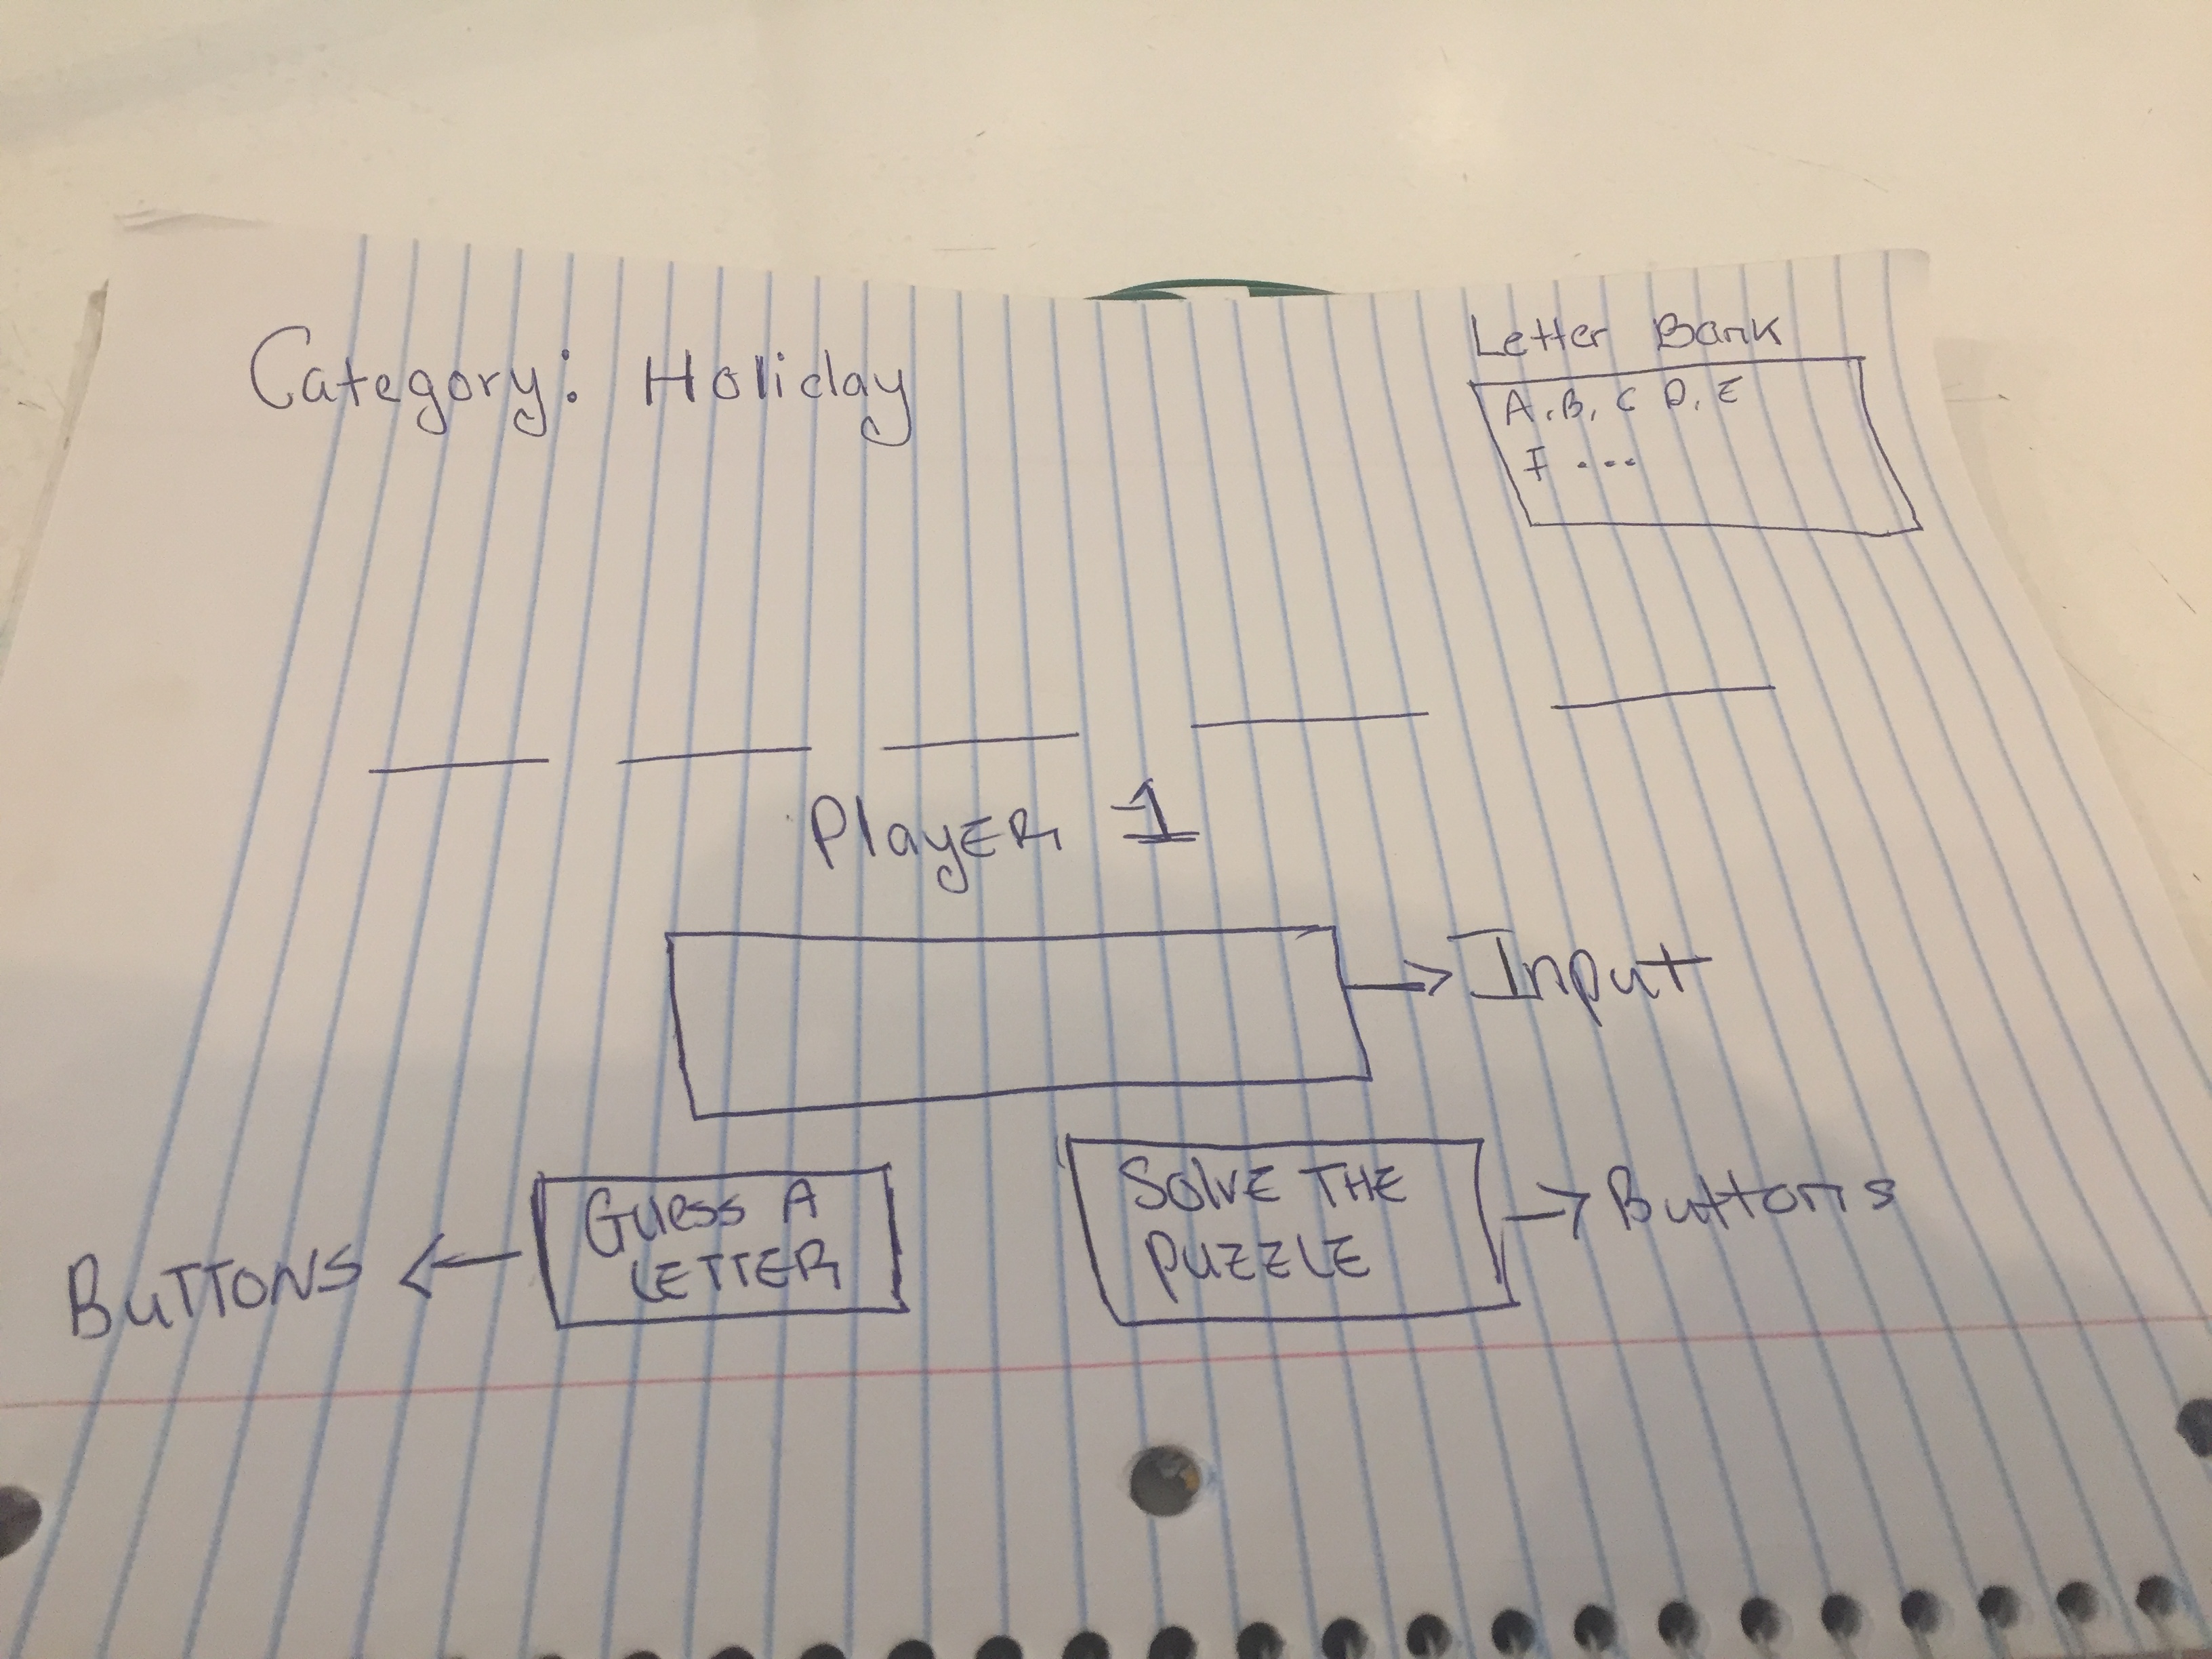 Category: Holiday
Letter Bank
A, B, C D, E
F ...
PlayER 1
Input
Guess A
LETTER
BuTTONS
SolvE THE
PuzzLE
Buttons